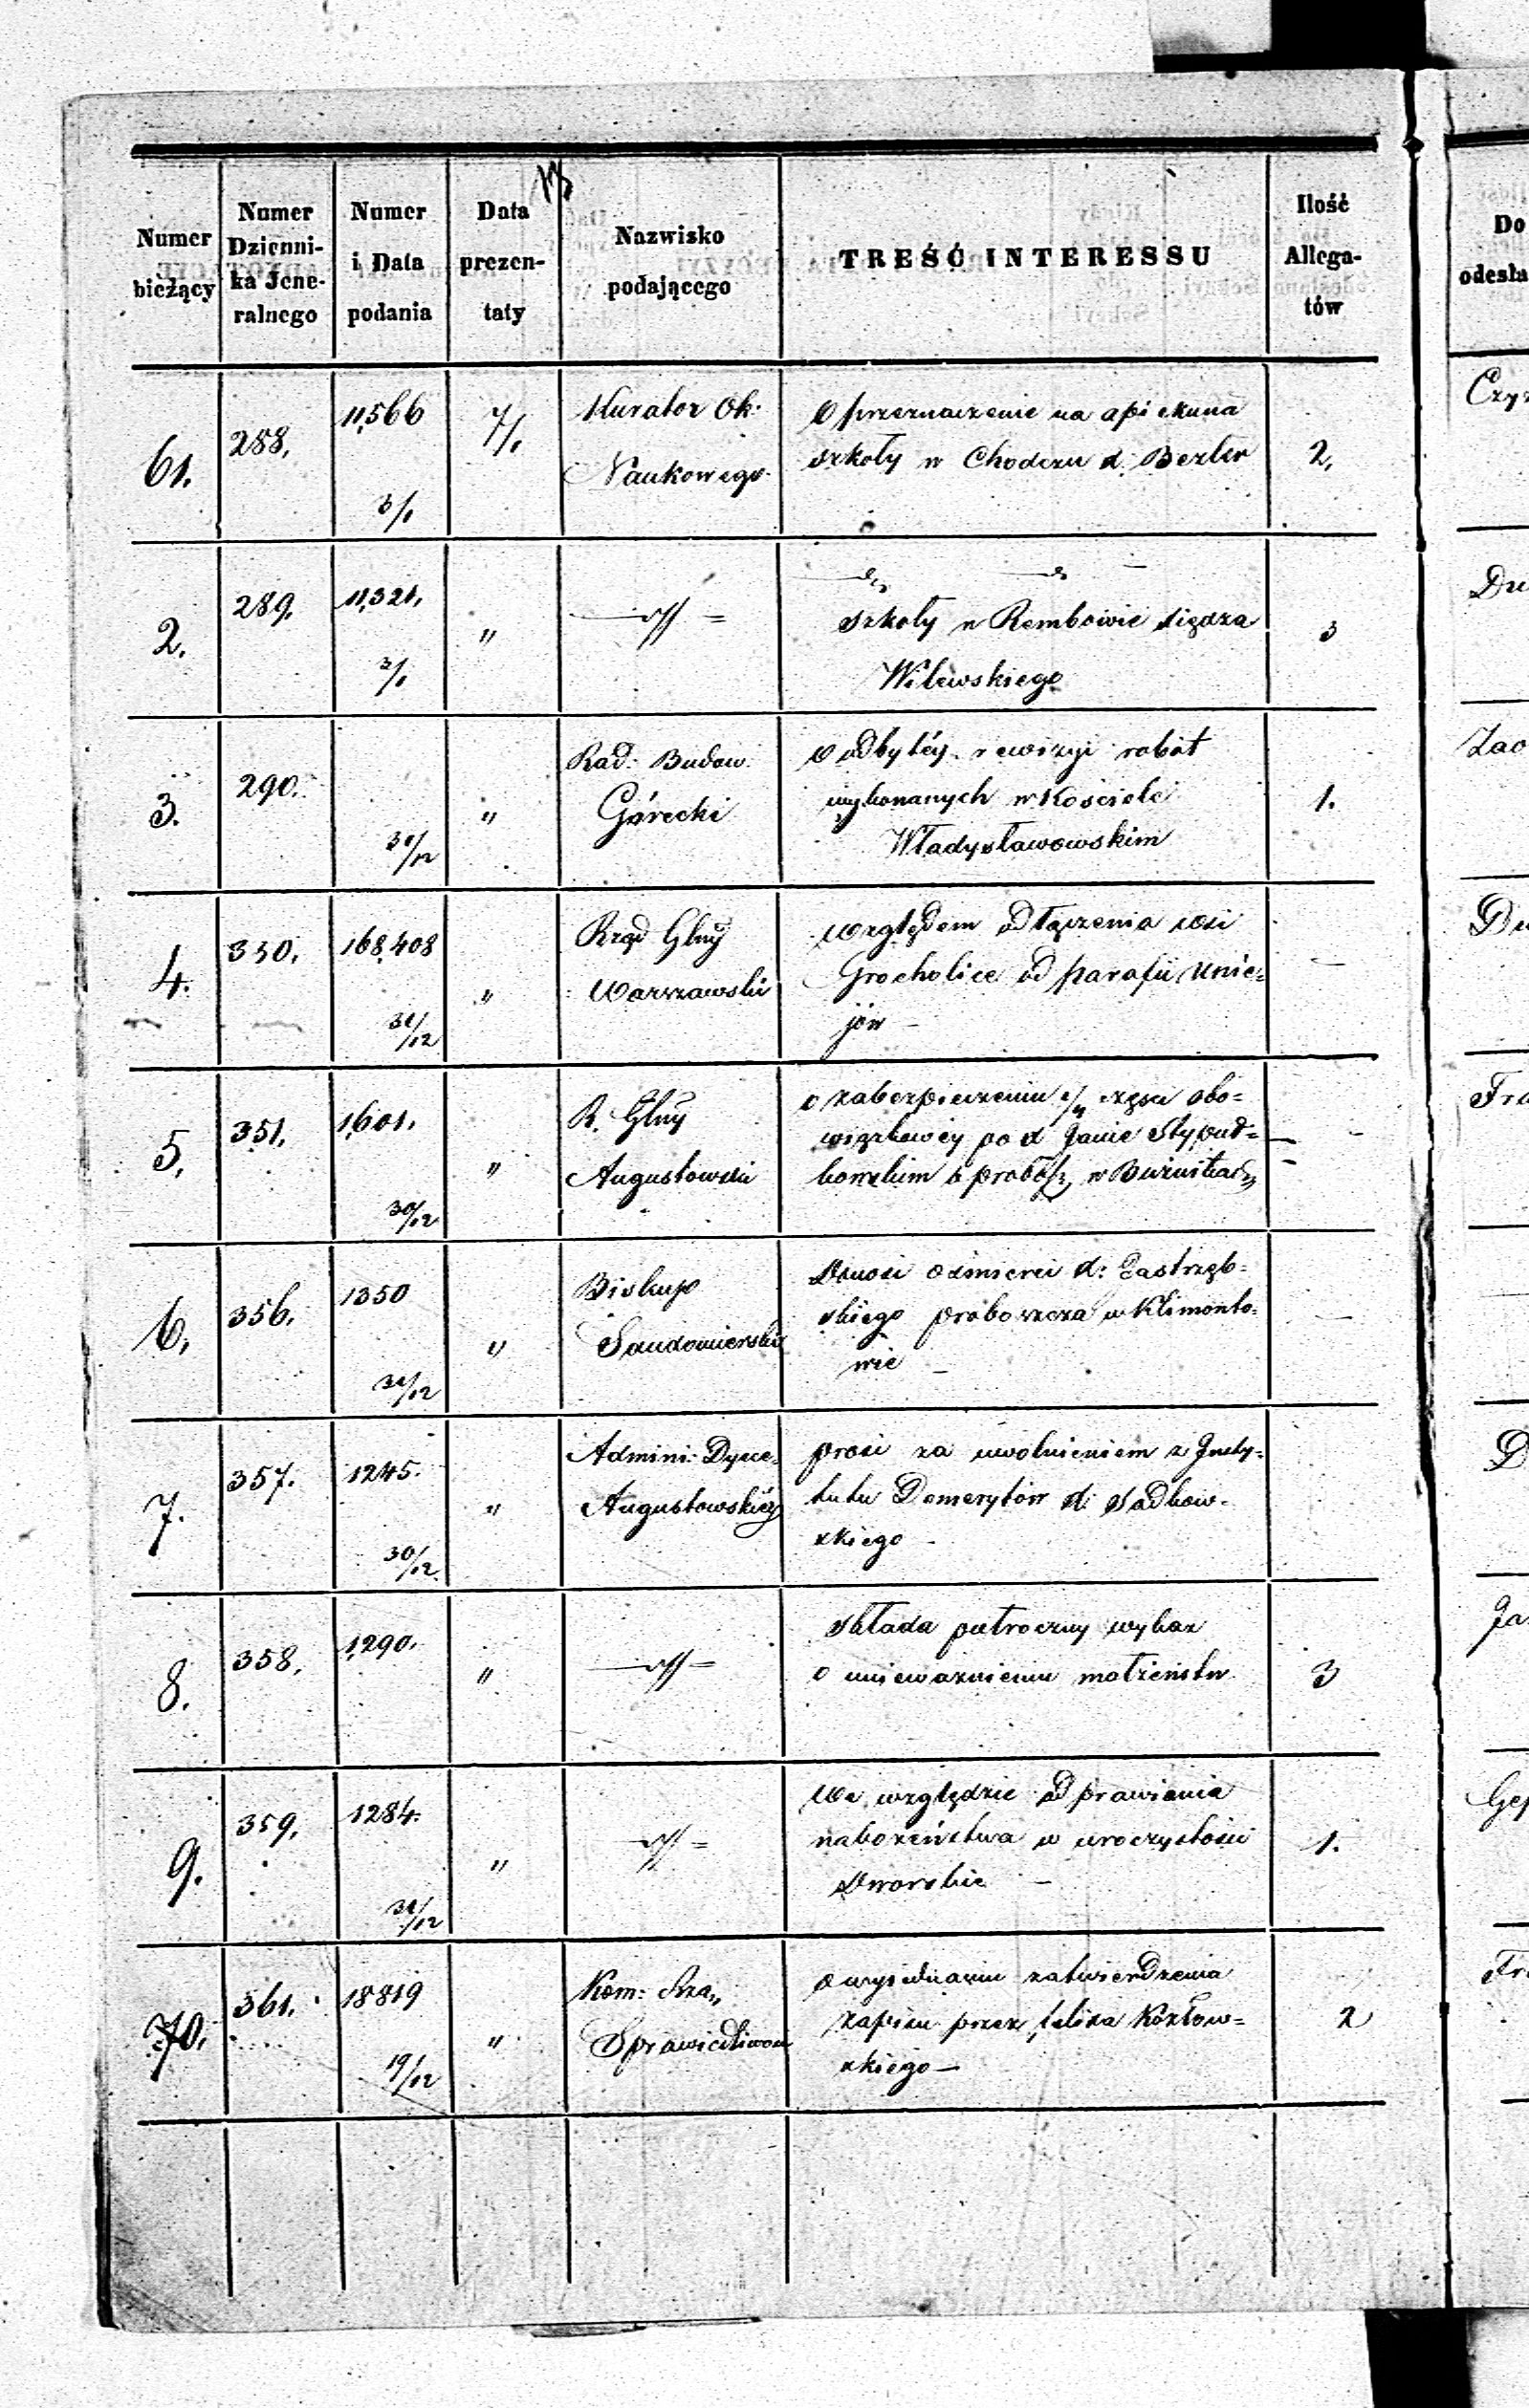 13
Numer bieżący
Numer Dzienni-ka Jene-ralnego
Numer i Data podania
Data prezen-taty
Nazwisko podającego
TREŚĆ INTERESSU
Ilość Allega-tów
Do
odesła
61.
288.
11,566
3/1
7/1
Kurator Ok:
Naukowego
O przeznaczenie na opiekuna
szkoły w Chodczu X. Bezler
2.
Czyz
2.
289.
11,321.
3/1
"
szkoły w Rembowie Xiędza
Wilewskiego
3
Du
3.
290.
31/12
"
Rad: Budow:
Górecki
O odbytéy rewizyi robót
wykonanych w Kościele
Władysławowskim
1.
Zao
4.
350.
168,408
31/12
"
Rząd Gbny
Warszawski
Względem odłączenia wsi
Grocholice od parafii Unie=
jów –
–
Du
5.
351.
1,601.
30/12
"
R. Gbny
Augustowski
o zabezpieczeniu części obo=
wiązkowéy po X Janie
Fra
6.
356.
1350
31/12
"
Biskup
Sandomierski
Donosi o śmierci X: Jastrzęb=
skiego proboszcza w Klimonto=
wie –
–
7.
357.
1245.
30/12.
"
Admini: Dyece.
Augustowskiéy
prosi za uwolnieniem z Insty=
tutu Demerytów X: Sadkow=
skiego –
D
8.
358.
1,290.
"
składa półroczny wykaz
o unieważnieniu małżeństw
3
Ja
9.
359.
1284.
31/12
"
We względzie odprawiania
nabożeństwa w uroczystości
Dworskie –
1.
Gep
70.
361.
18819
19/12
"
Kom: Rzą„
Sprawiedliwości
o wyjednaniu zatwierdzenia
zapisu przez Felixa Kozłow=
skiego –
2
Fr